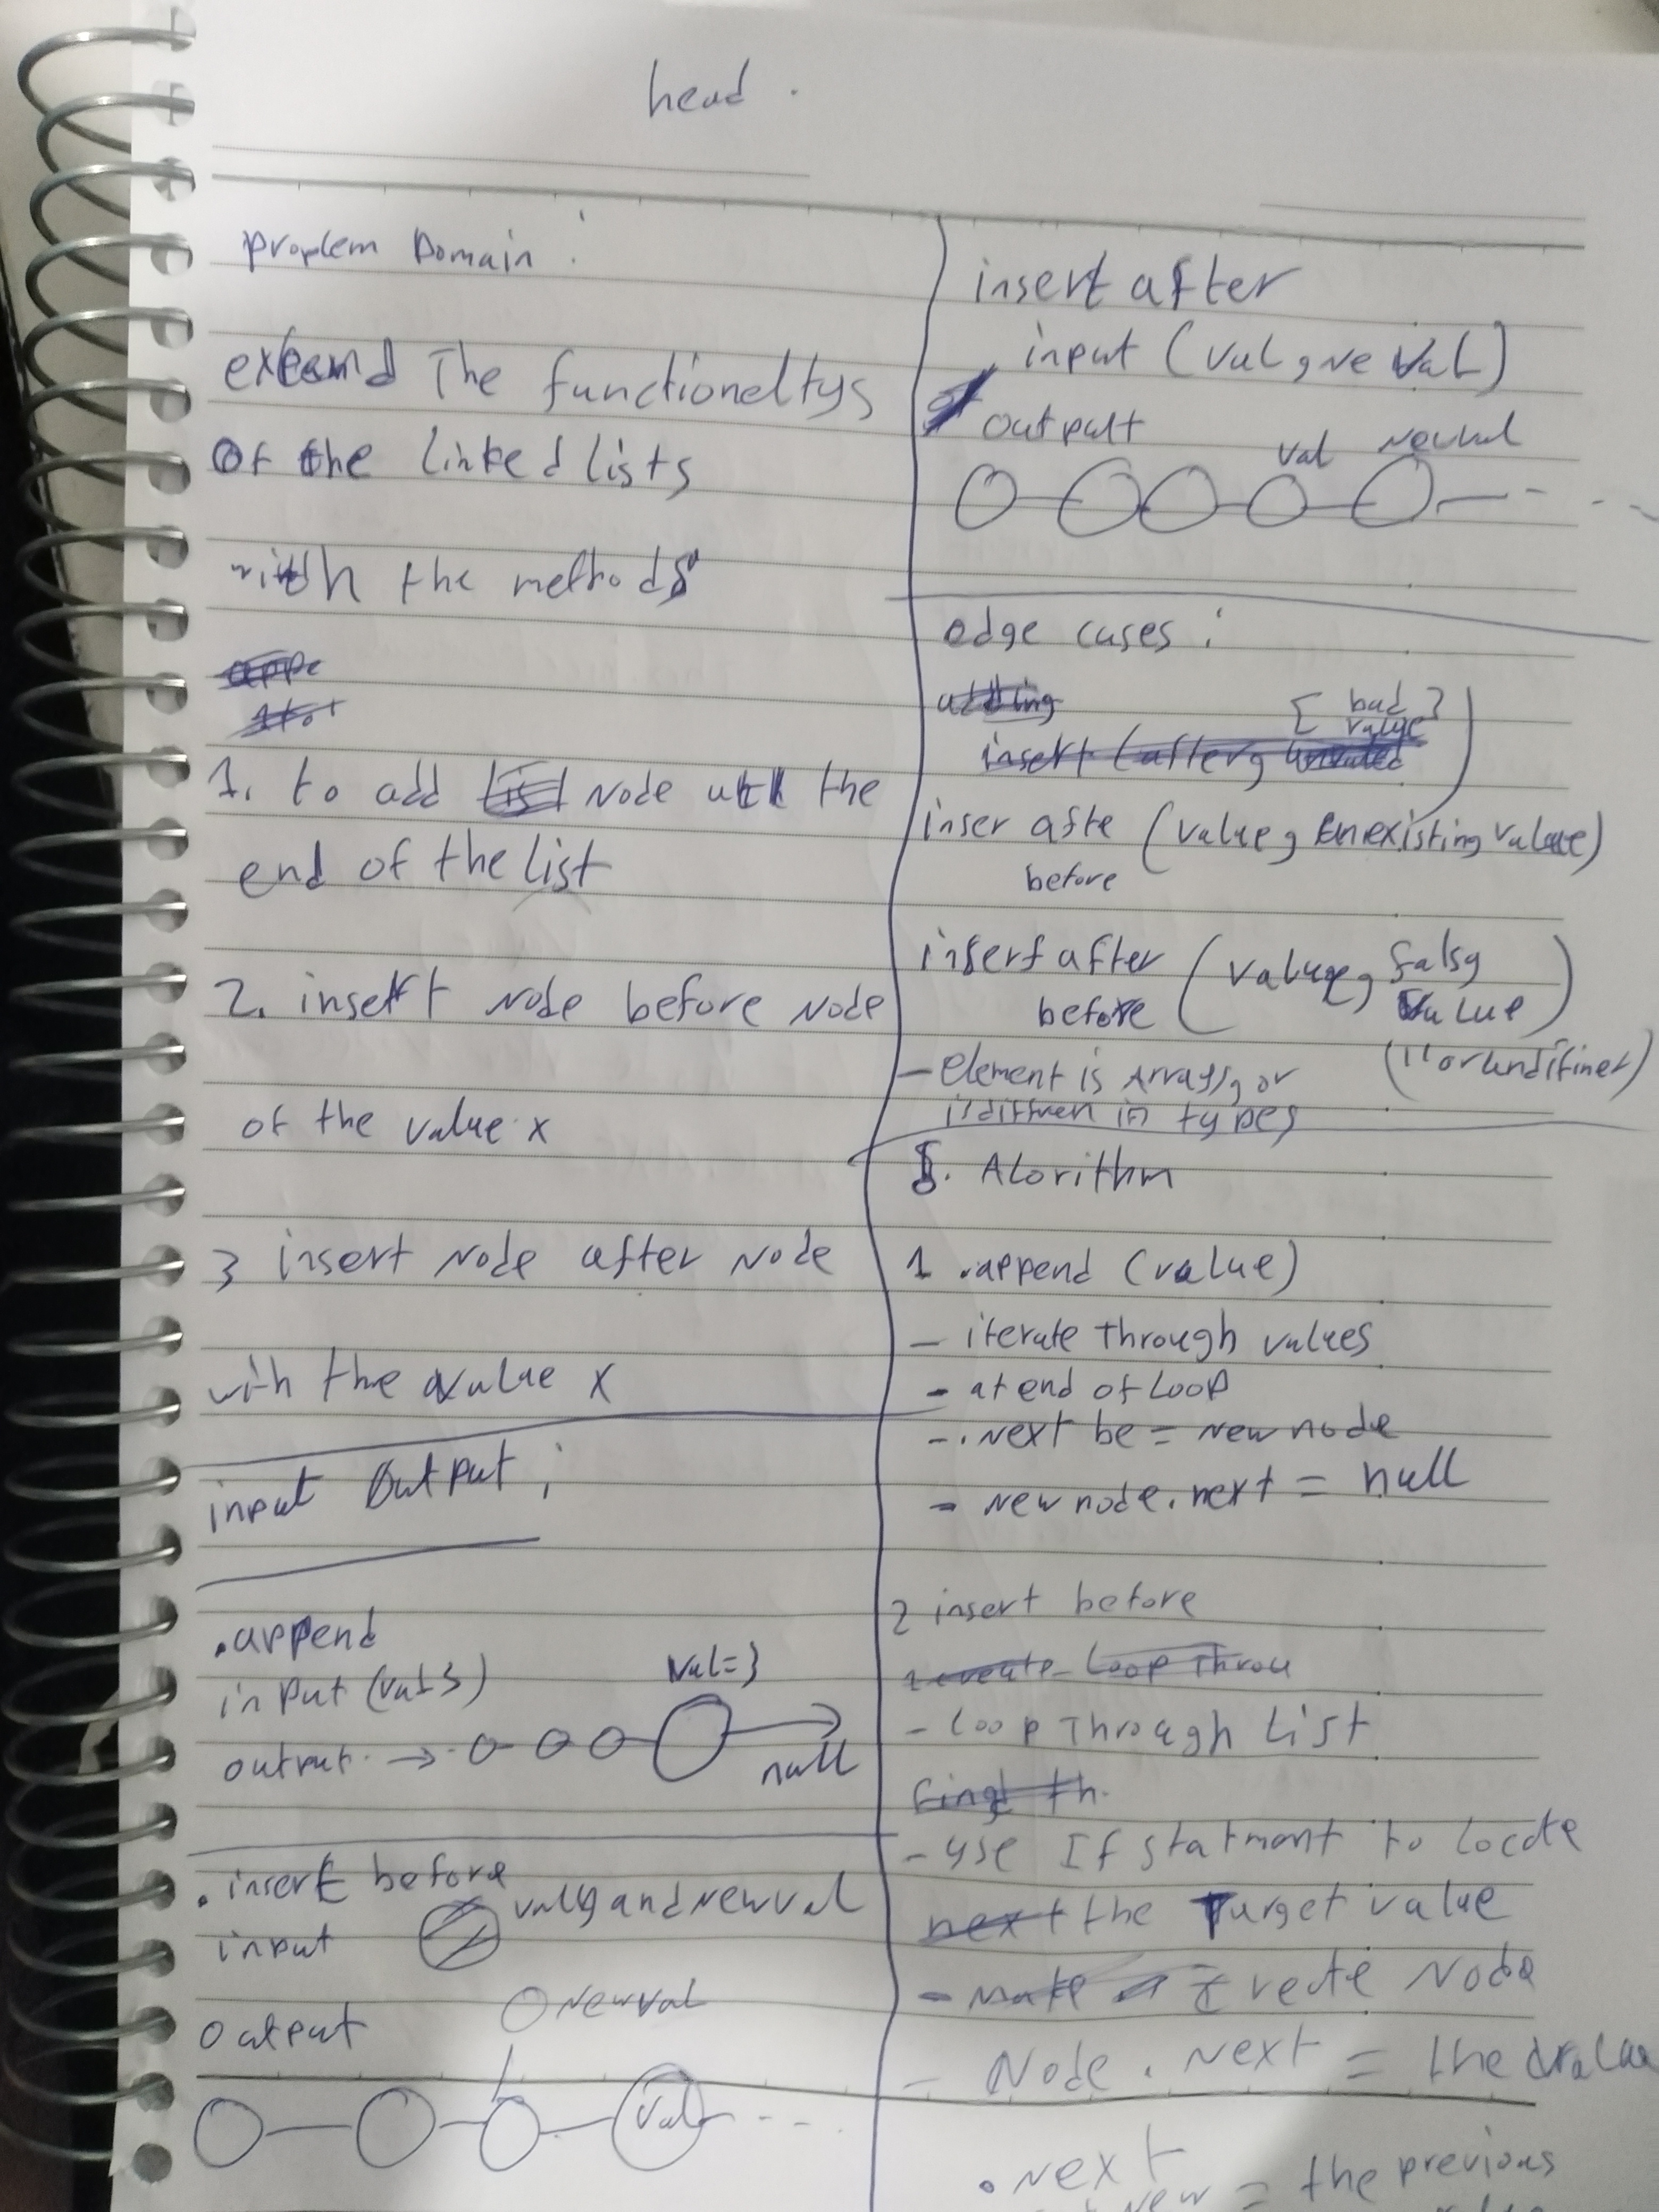 head .
proplem Domain :
extend The functioneltys
Of the linked lists
with the methods
1. to add Node at the
end of the list
2. insert Node before Node
of the value x
3 insert Node after Node
with the value x
input Output ;
.append
input (val 3)
Val=3
output. →
null
. insert before
input and newval
newval
output
Val
insert after
input (val, Ne Val)
output
val Newval
edge cases :
[ bad ]
value
inser afte (value, Enexisting value)
before
insert after (value, falsy
before value)
- Element is Arrays, or
in types
Alorithm
1 .append (value)
- iterate Through values
- at end of Loop
- . Next be = New node
- New node. next = null
2 insert before
- Loop Through List
- use If statment to Locate
the Target value
- Create Node
- Node . Next = the
. Next
new = the previous